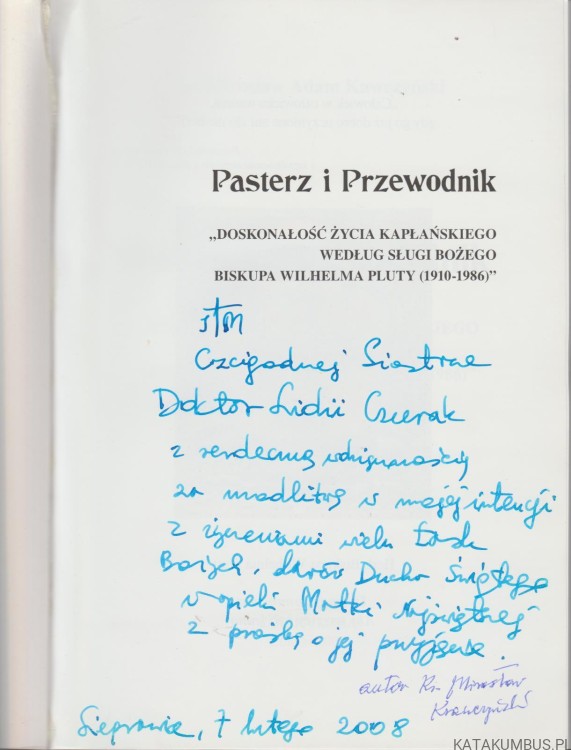 Pasterz i Przewodnik
„DOSKONAŁOŚĆ ŻYCIA KAPŁAŃSKIEGO
WEDŁUG SŁUGI BOŻEGO
BISKUPA WILHELMA PLUTY (1910-1986)”
Czcigodnej Siostrze
Doktor Lidii
z serdeczną wdzięcznością
za modlitwę w mojej intencji
z życzeniami wielu Łask
Bożych, darów Ducha Świętego
w opieki Matki Najświętszej
z prośbą o jej
autor Ks. Mirosław
7 lutego 2008
KATAKUMBUS.PL